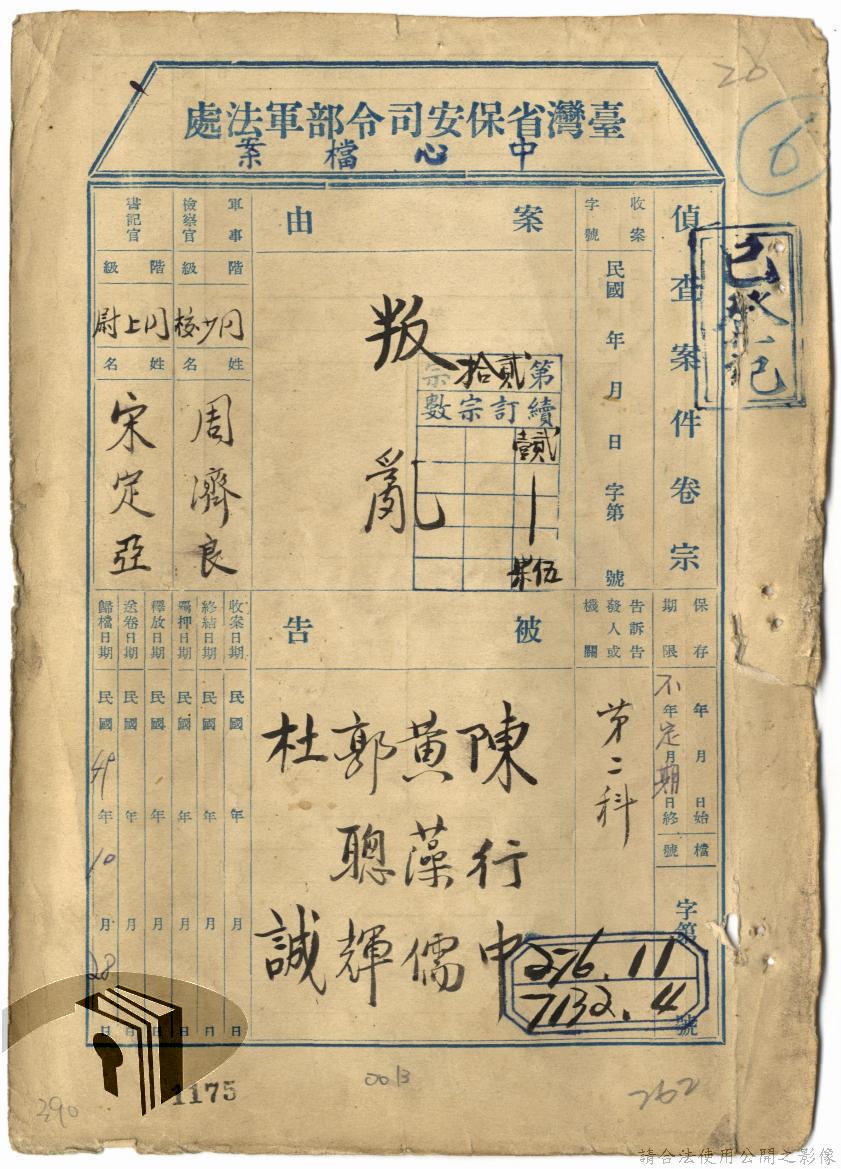 臺灣省保安司令部軍法處
中心檔案
偵查案件卷宗
已登記
收案字號
民國 年 月 日 字第 號
案由
叛亂
第貳拾宗
續訂宗數
貳壹
伍柒
軍事檢察官
階級
同少校
姓名
周濟良
書記官
階級
同上尉
姓名
宋定亞
保存期限
年 月 日始
年 月 日終
不定期
檔號
字第 號
276.11
7132.4
告訴告發人或機關
第二科
被告
陳行中
黃藻儒
郭聰輝
杜誠
收案日期 民國 年 月 日
終結日期 民國 年 月 日
羈押日期 民國 年 月 日
釋放日期 民國 年 月 日
送卷日期 民國 年 月 日
歸檔日期 民國 年 10 月 28 日
26
6
390
1175
0013
262
請合法使用公開之影像